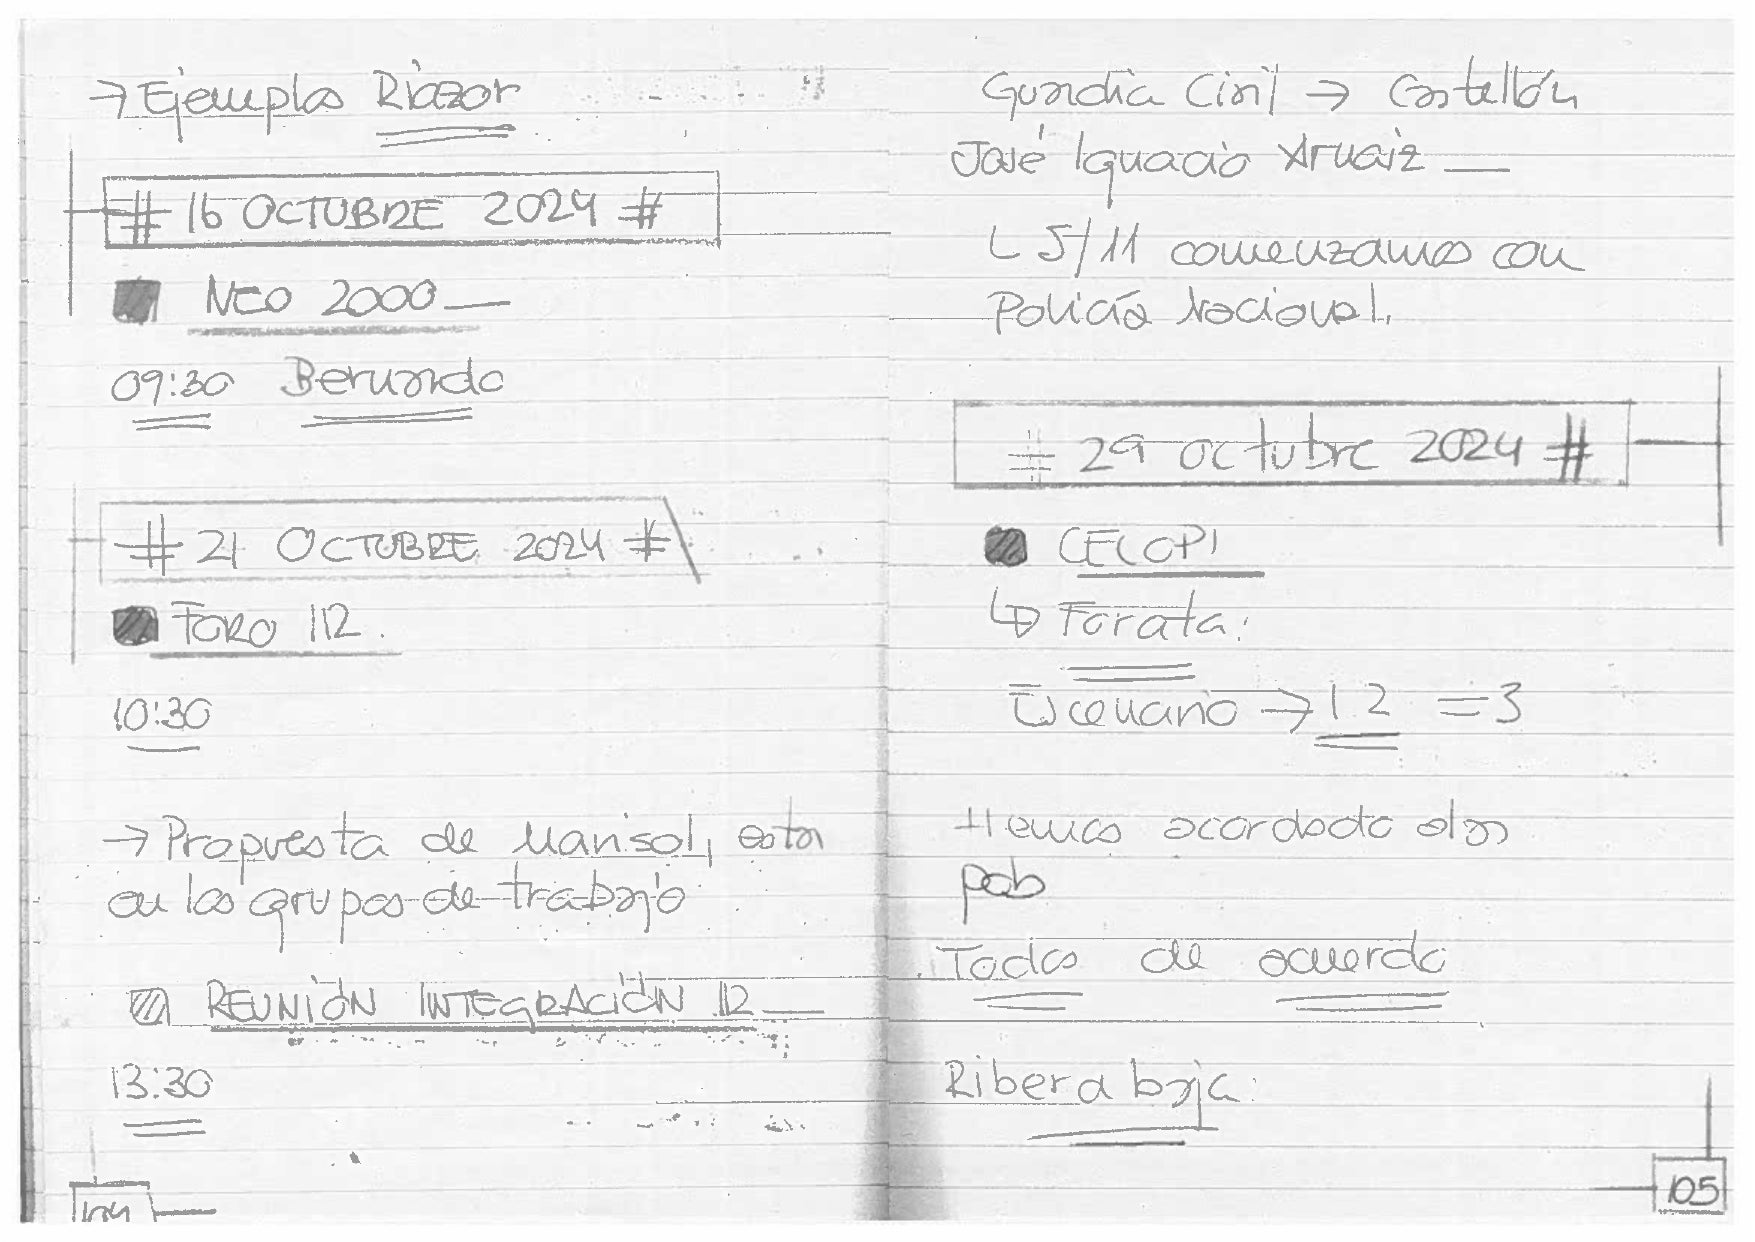 → Ejemplos Riazor
# 16 OCTUBRE 2024 #
NEO 2000
09:30 Bernardo
# 21 OCTUBRE 2024 #
FORO 112.
10:30
→ Propuesta de Marisol, estar
en los grupos de trabajo
REUNIÓN INTEGRACIÓN 112
13:30
104
Guardia Civil → Castellón
José Ignacio Arnaiz
5/11 comenzamos con
Policía Nacional.
# 29 octubre 2024 #
CECOPI
↳ Forata:
Escenario → 1 2 = 3
Hemos acordado
pob
Todos de acuerdo
Ribera baja:
105